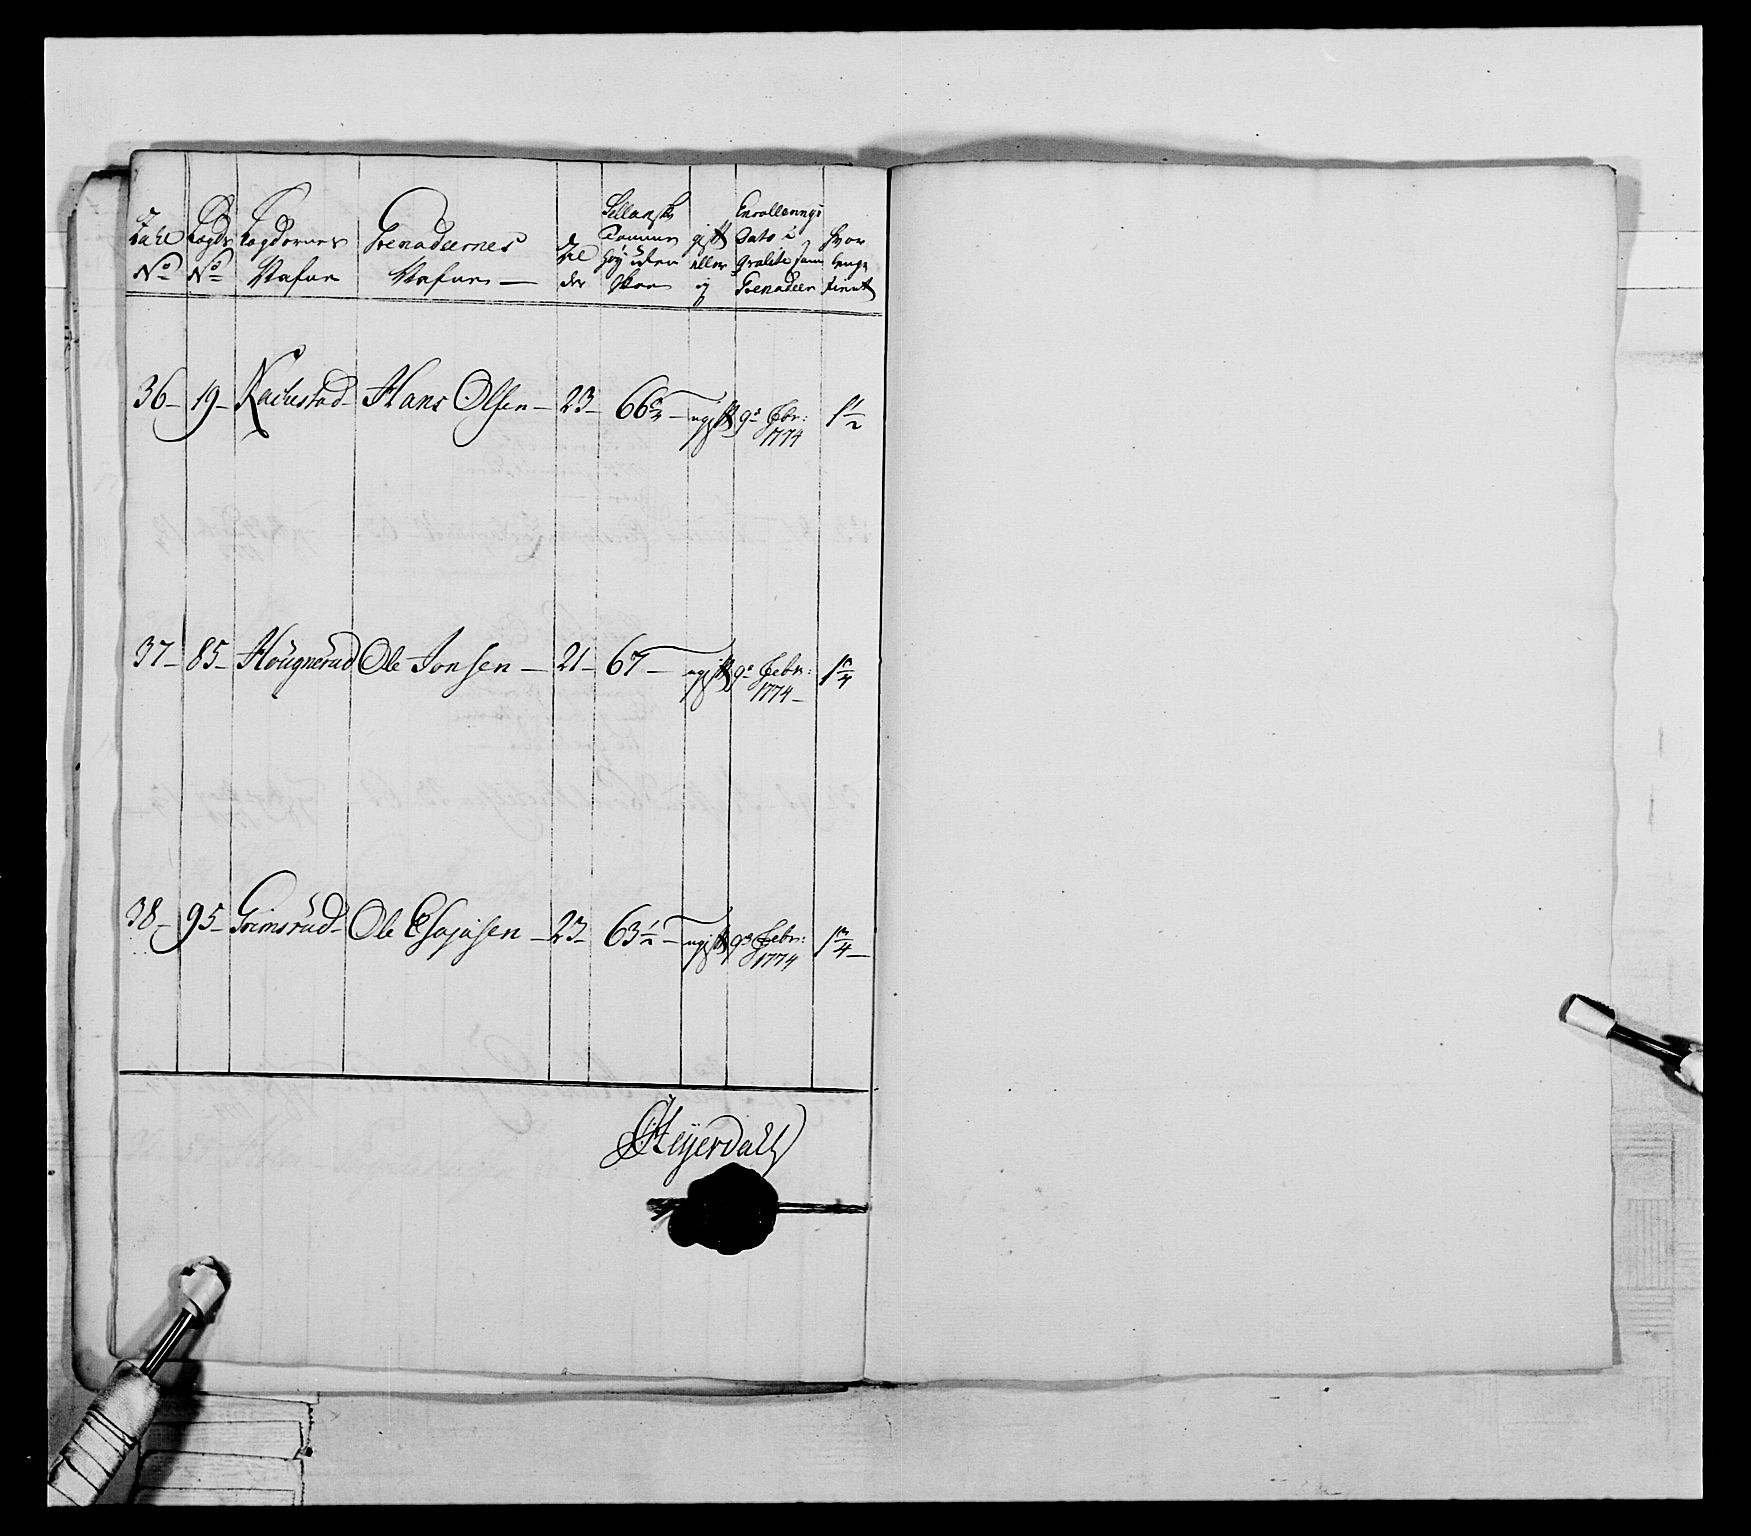 Tahl No
Lægds No
Lægdernes Nafne
Grenadeernes Nafne —
Al der
Sellansk Tommer høy uden Skoe
gift eller ey
Enrollerings Dato i Qvalite som Grenadeer
hvor lenge tient
36 — 19 — Rachestad — Hans Olsen — 23 — 66 3/4 — ugift 9de Febr: 1774 1 1/2
37 — 85 — Hougnerud Ole Jonsen — 21 — 67 — ugift 9de Febr: 1774 — 1 1/4
38 — 95 — Grimsrud — Ole Esajasen — 23 — 63 1/2 — ugift 9de Febr: 1774 1 3/4 —
Heyerdahl